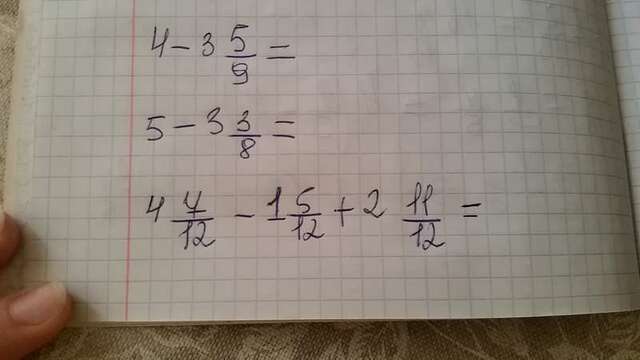 4 - 3 5/9 =
5 - 3 3/8 =
4 4/12 - 1 5/12 + 2 11/12 =